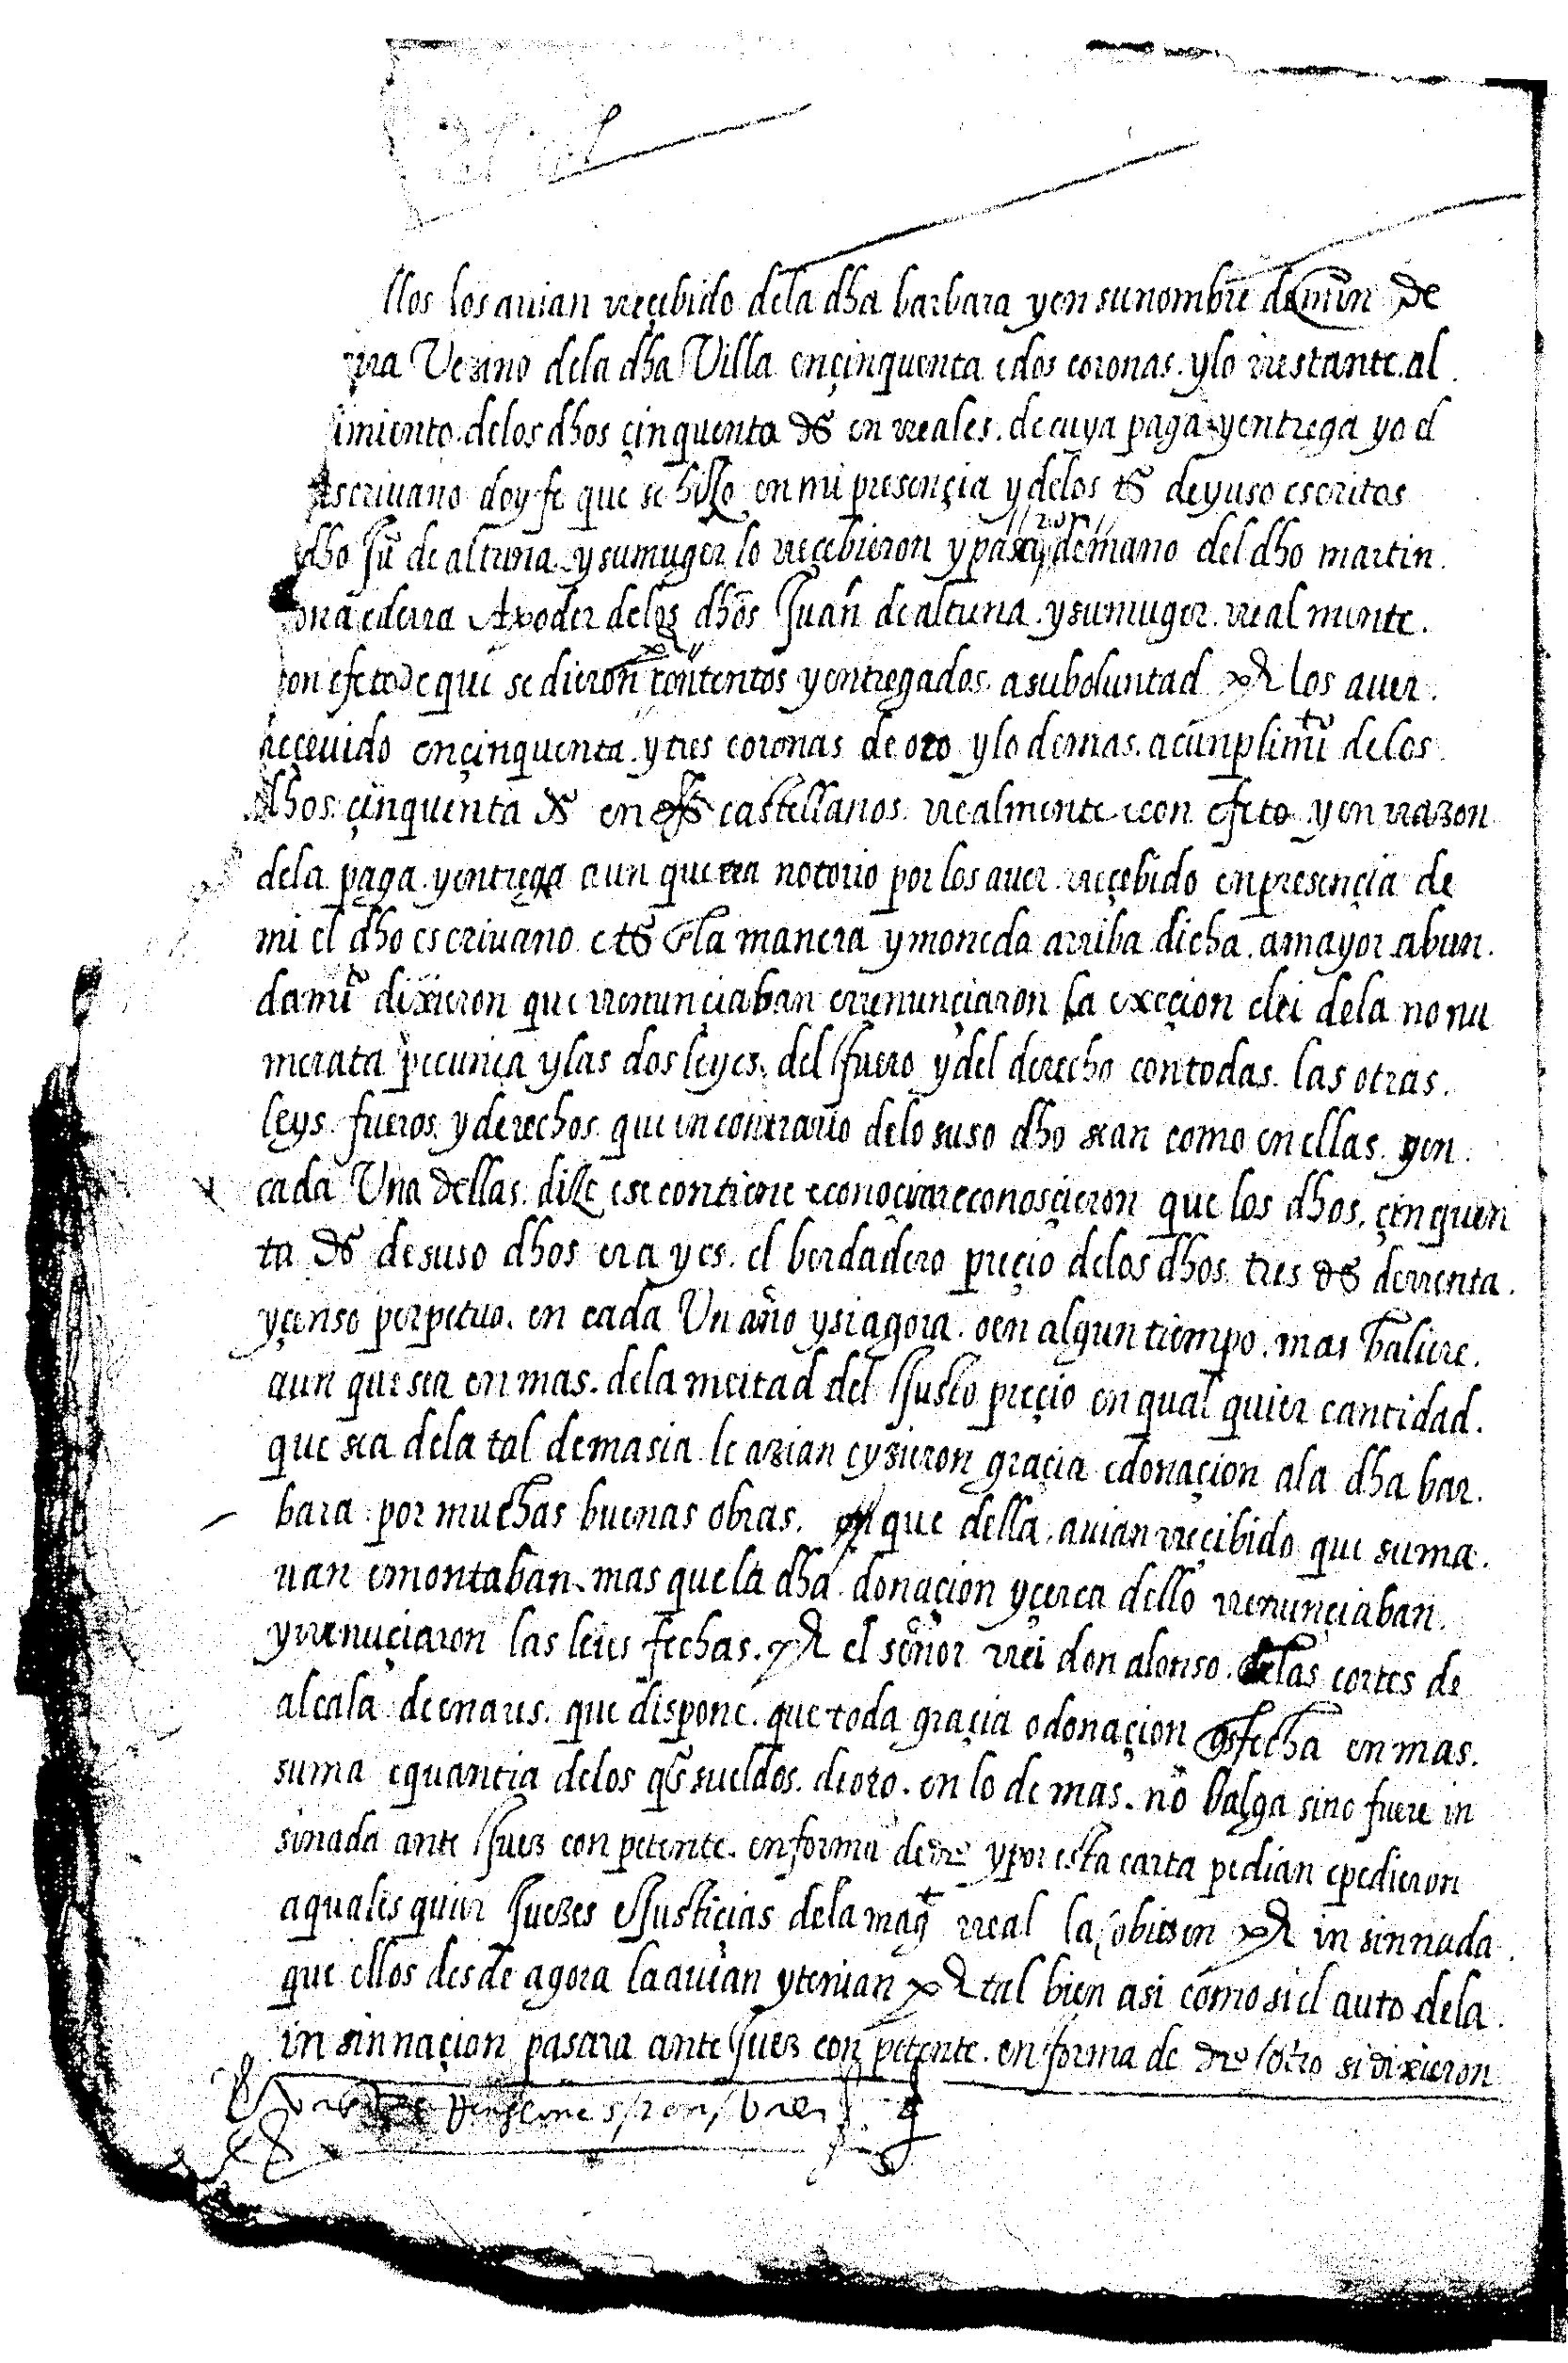 llos los auian rreçebido dela dha barbara y en su nombre de mrn de
rra Vezino dela dha Villa en çinquenta e dos coronas. y lo rrestante. al
imiento. delos dhos çinquenta ds en rreales. de cuya paga y entrega yo el
escriuano doy fe que se hizo en mi presençia y delos ts de yuso escritos
dho Jun de altuna. y su muger lo rreçebieron y paso de mano del dho martin.
ona ederra A poder delos dhos Juan de altuna. y su muger. rreal mente.
on efeto de que se dieron contentos y entregados. a su boluntad por los auer.
rreçeuido en çinquenta. y tres coronas de oro y lo demas. a cunplimito delos
dhos. çinquenta ds en castellanos. rrealmente e con efeto y en rrazon
dela paga. y entrega aun que era notorio por los auer. rreçebido en presençia de
mi el dho escriuano e ts en la manera y moneda arriba dicha. a mayor abun.
damito dixieron que rrenunçiaban e rrenunçiaron la exeçion e lei dela no nu
merata pecunia y las dos leyes. del fuero y del derecho con todas. las otras.
leys. fueros. y derechos. que en contrario delo suso dho sean como en ellas. y en.
cada Una dellas. dize e se contiene e conoçieron que los dhos. çinquen
ta ds de suso dhos era y es. el berdadero preçio delos dhos tres ds de rrenta.
y çenso perpetuo. en cada Un año y si agora. o en algun tiempo. mas baliere.
aun que sea en mas. dela meitad del Justo preçio en qual quier cantidad.
que sea dela tal demasia le azian e yzieron graçia e donaçion ala dha bar.
bara. por muchas buenas obras. que della. auian rreçibido que suma.
uan e montaban. mas que la dha. donaçion y çerca dello rrenunçiaban.
y rrenuçiaron las leies fechas. por el señor rrei don alonso. delas cortes de
alcala de enares. que dispone. que toda graçia o donaçion fecha en mas.
suma e quantia delos qs sueldos. de oro. en lo de mas. no balga sino fuere in
sinada ante Juez con petente. en forma de dro y por esta carta pedian e pedieron
a quales quier Juezes e Justiçias dela magt rreal la obiesen por in sinnada.
que ellos desde agora la auian y tenian por tal bien asi como si el auto dela.
in sinnaçion pasara ante Juez con petente. en forma de dro / otro si dixieron